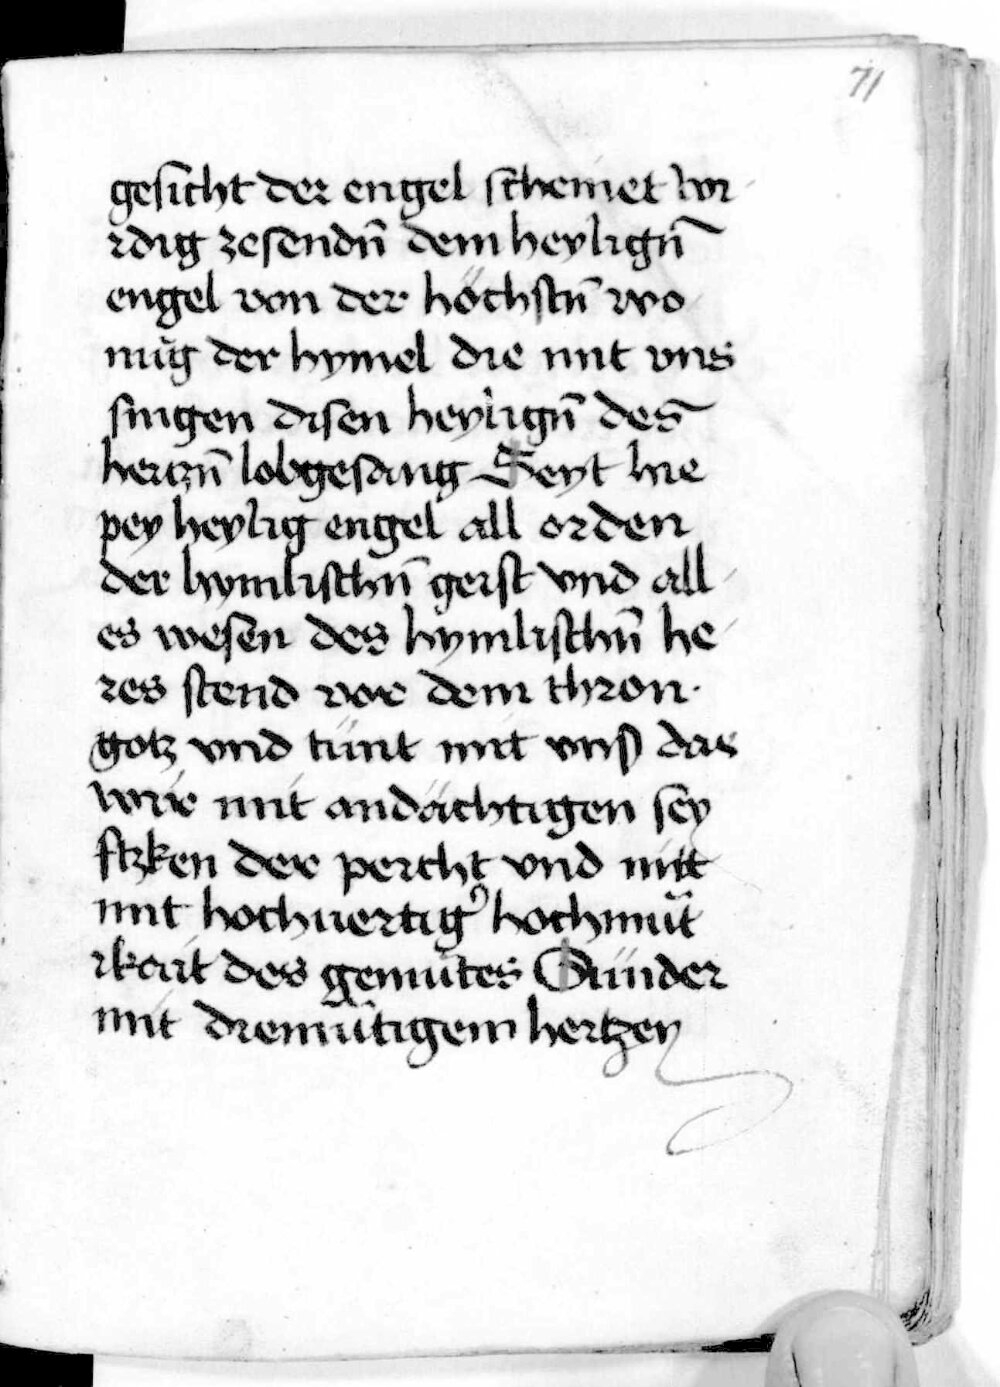 71
gesicht der engel scheinet wi
rdig zesendn̄ dem heylign̄
engel von der höchstn̄ wo
nūg der hymel die mit vns
singen disen heylign̄ des
hertzn̄ lobgesang Seyt hie
pey heylig engel all orden
der hymlischn̄ geist vnd all
es wesen des hymlischn̄ he
res stend vor dem thron
gotz vnd tünt mit vnß das
wir mit andächtigen sey
ftzken der peicht vnd nitt
mit hochuertigͬ hochmüt
ikait des gemütes Sünder
mit diemütigem hertzen